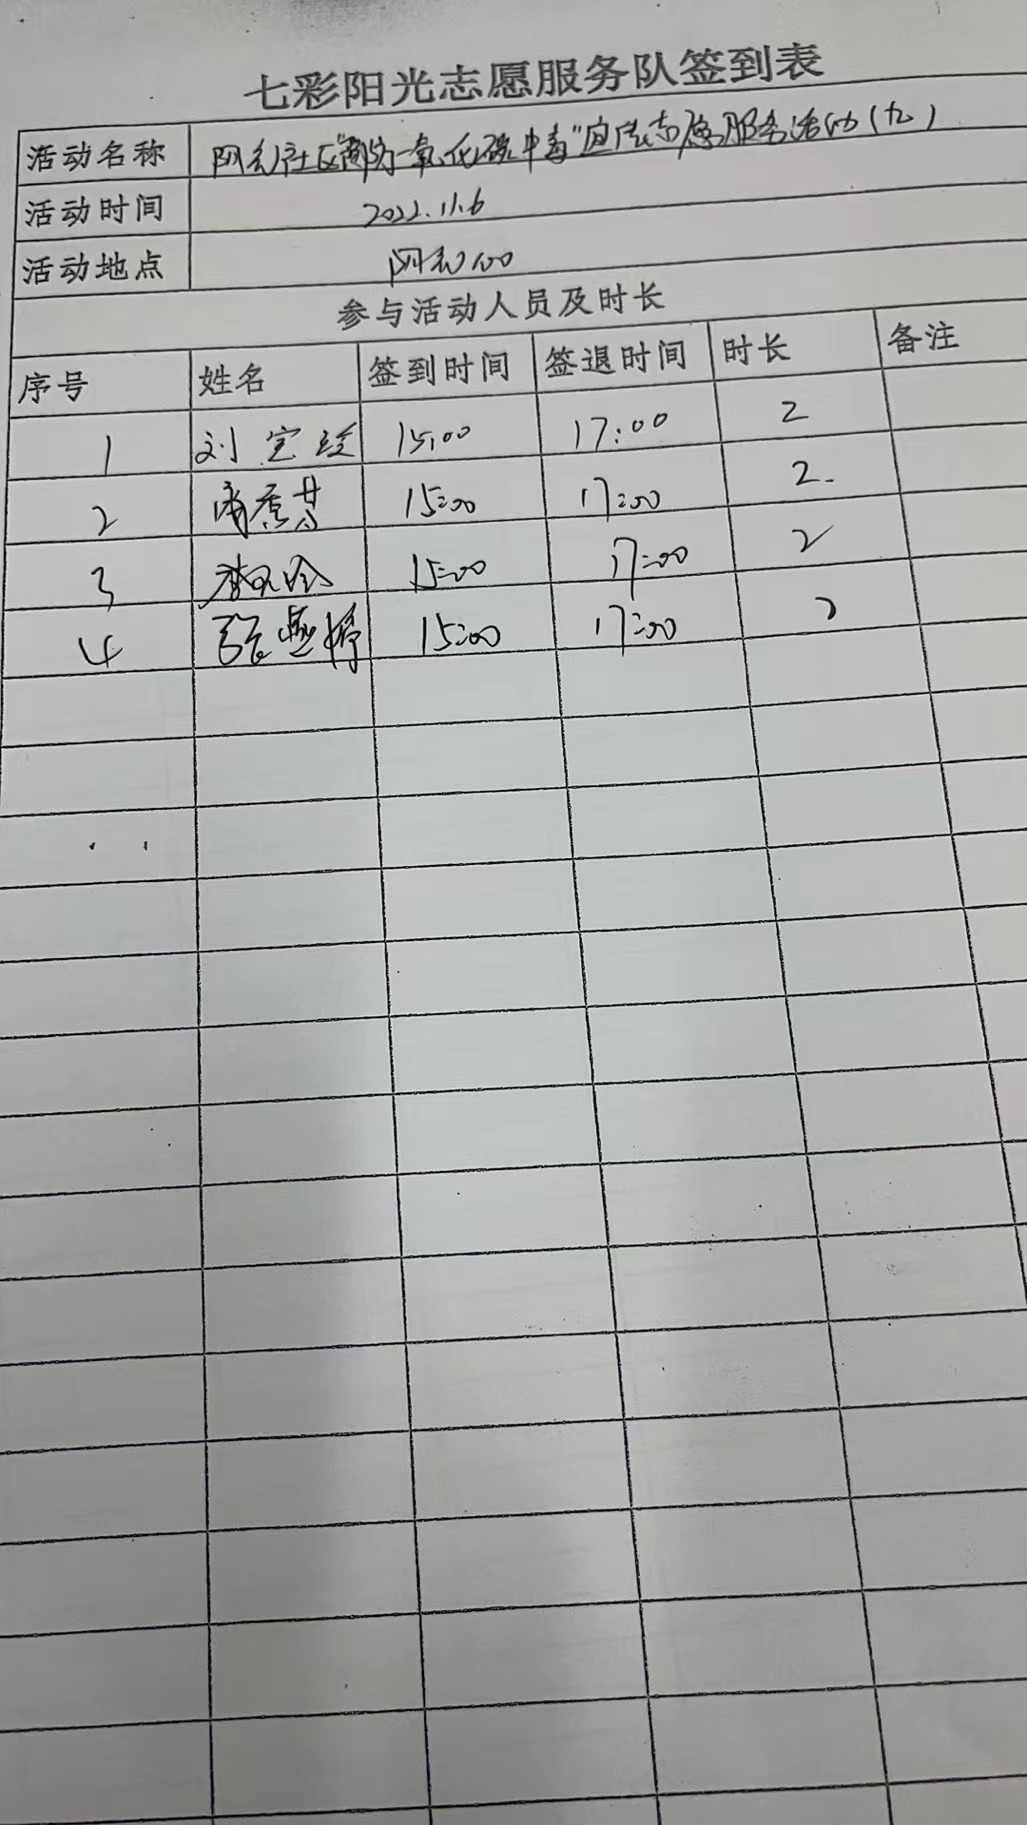 七彩阳光志愿服务队签到表
活动名称 社区"预防一氧化碳中毒"宣传志愿服务活动(九)
活动时间 2022.11.6
活动地点
参与活动人员及时长
序号 姓名 签到时间 签退时间 时长 备注
1 刘宝玲 15:00 17:00 2
2 15:00 17:00 2
3 15:00 17:00 2
4 张燕婷 15:00 17:00 2